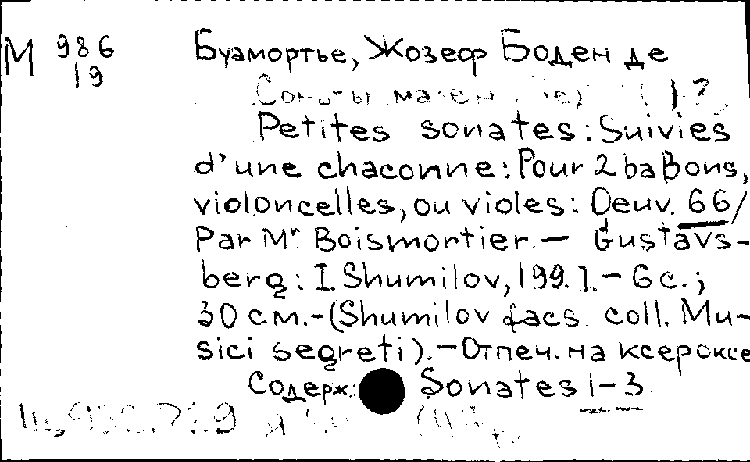 М 986
19
Буамортье, Жозеф Боден де
Petites sonates: Suivies
d'une chaconne: Pour 2 baBons,
violoncelles, ou violes: Oeuv. 66/
Par Mr Boismortier. — Gustavs-
berg: I. Shumilov, 199. — 6 с.;
30 см.-(Shumilov facs. coll. Mu-
sici segreti).-Отпеч. на ксероксе
Содерж: Sonates 1-3